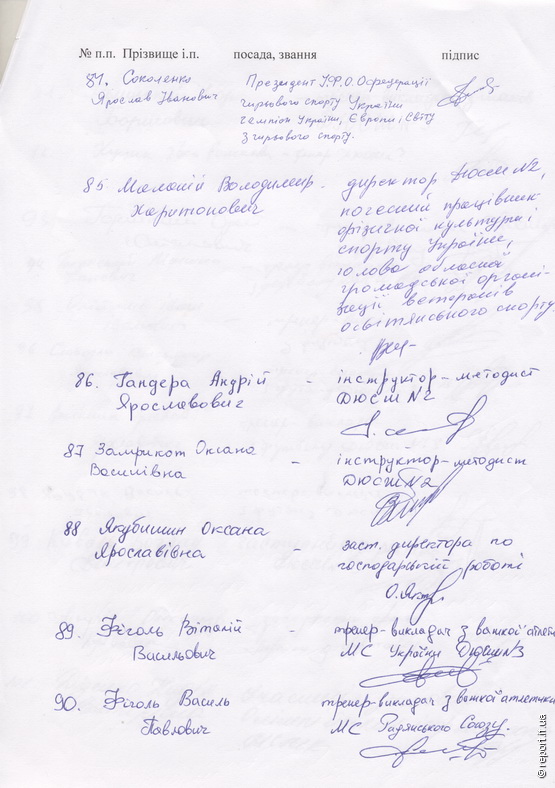 № п.п. Прізвище і.п. посада, звання підпис
84. Соколенко Президент У.Ф.О. Федерації
Ярослав Іванович гирьового спорту України
чемпіон України, Європи і Світу
з гирьового спорту.
85 Володимир директор ДЮСШ №2,
Харитонович почесний працівник
фізичної культури і
спорту України,
голова обласної
громадської органі-
зації ветеранів
освітянського спорту.
86. Гандера Андрій - інструктор-методист
Ярославович ДЮСШ №2
87 Оксана - інструктор-методист
Василівна ДЮСШ №2
88 Якубишин Оксана
Ярославівна - заст. директора по
господарській роботі
89. Фіголь Віталій - тренер-викладач з важкої атлетики
Васильович МС України №3
90. Фіголь Василь тренер-викладач з важкої атлетики
Павлович МС Радянського Союзу.
© report.if.ua